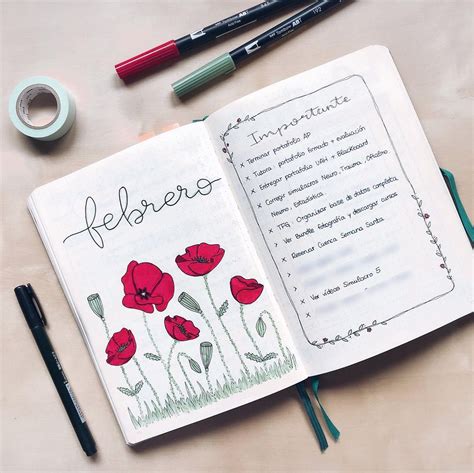 febrero
Importante
x Terminar portafolio AP
x Tutora: portafolio firmado + evaluación
x Entregar portafolio UAH + Blackboard
x Corregir simulacros Neuro, Trauma, Oftalmo
Neumo, Estadística
x TFG: Organizar base de datos completa
> Ver Bundle fotografía y descargar cursos
x Reservar Cuenca Semana Santa
x Ver vídeos Simulacro 5
x
192